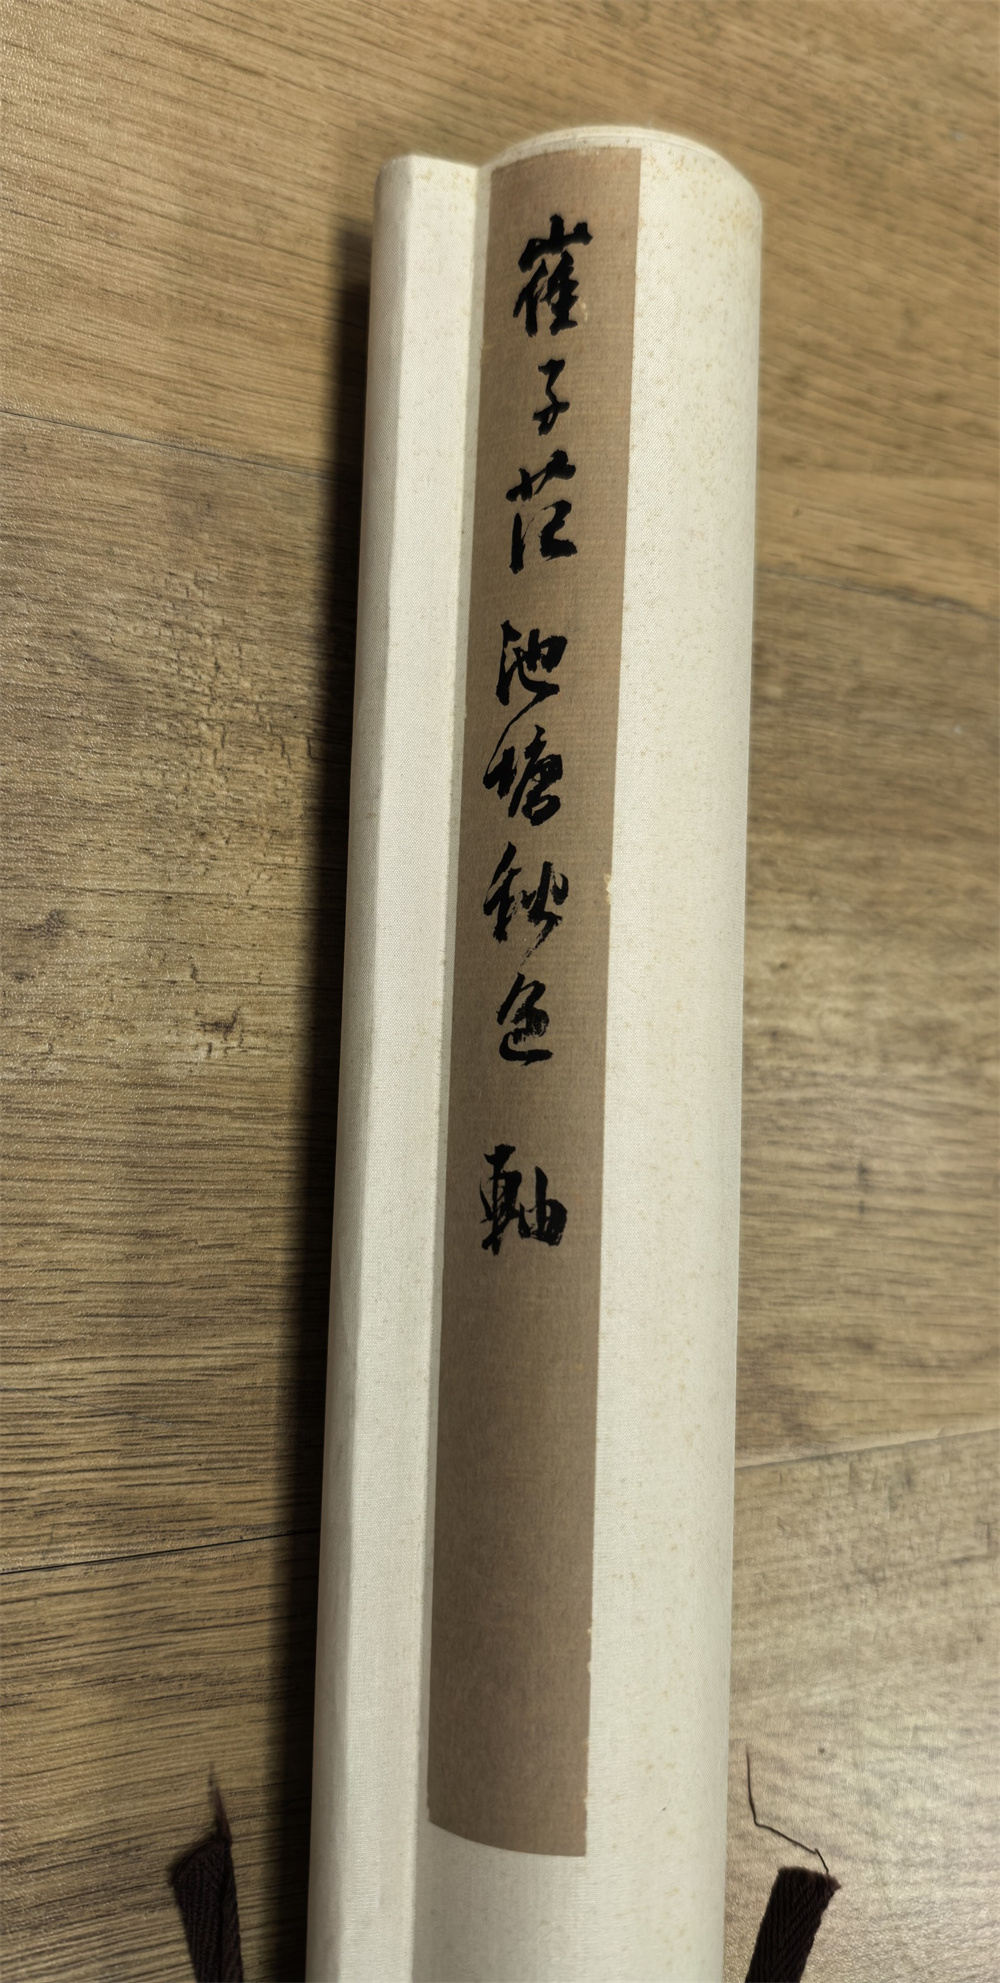 崔子范 池塘秋色 軸